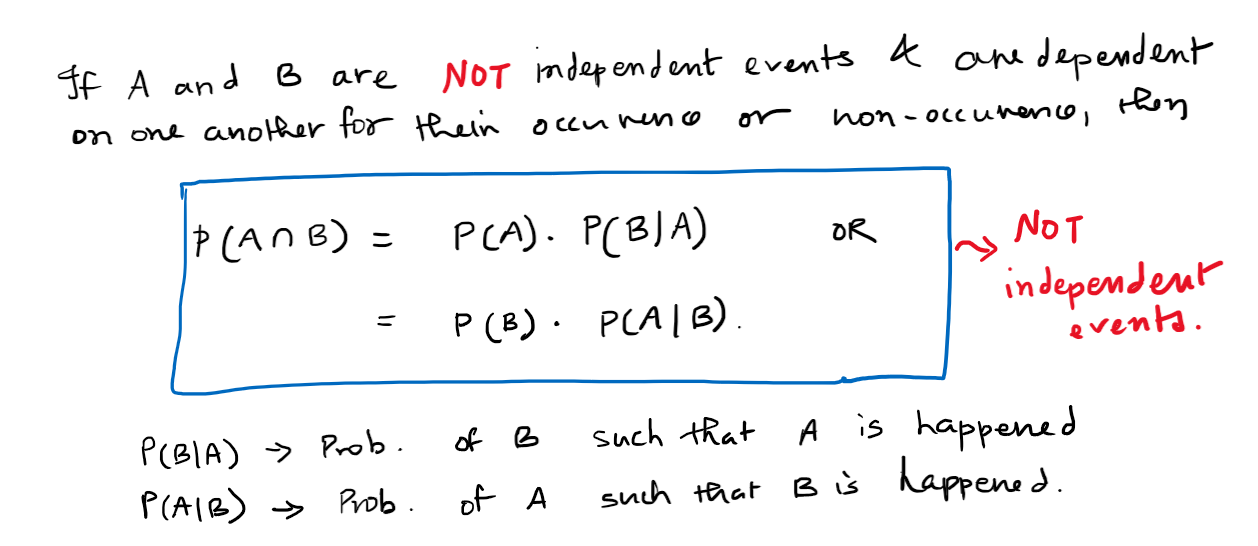 If A and B are NOT independent events & are dependent
on one another for their occurrence or non-occurence, then
P(A∩B) = P(A). P(B|A) OR
= P(B). P(A|B).
→ NOT
independent
events.
P(B|A) → Prob. of B such that A is happened
P(A|B) → Prob. of A such that B is happened.